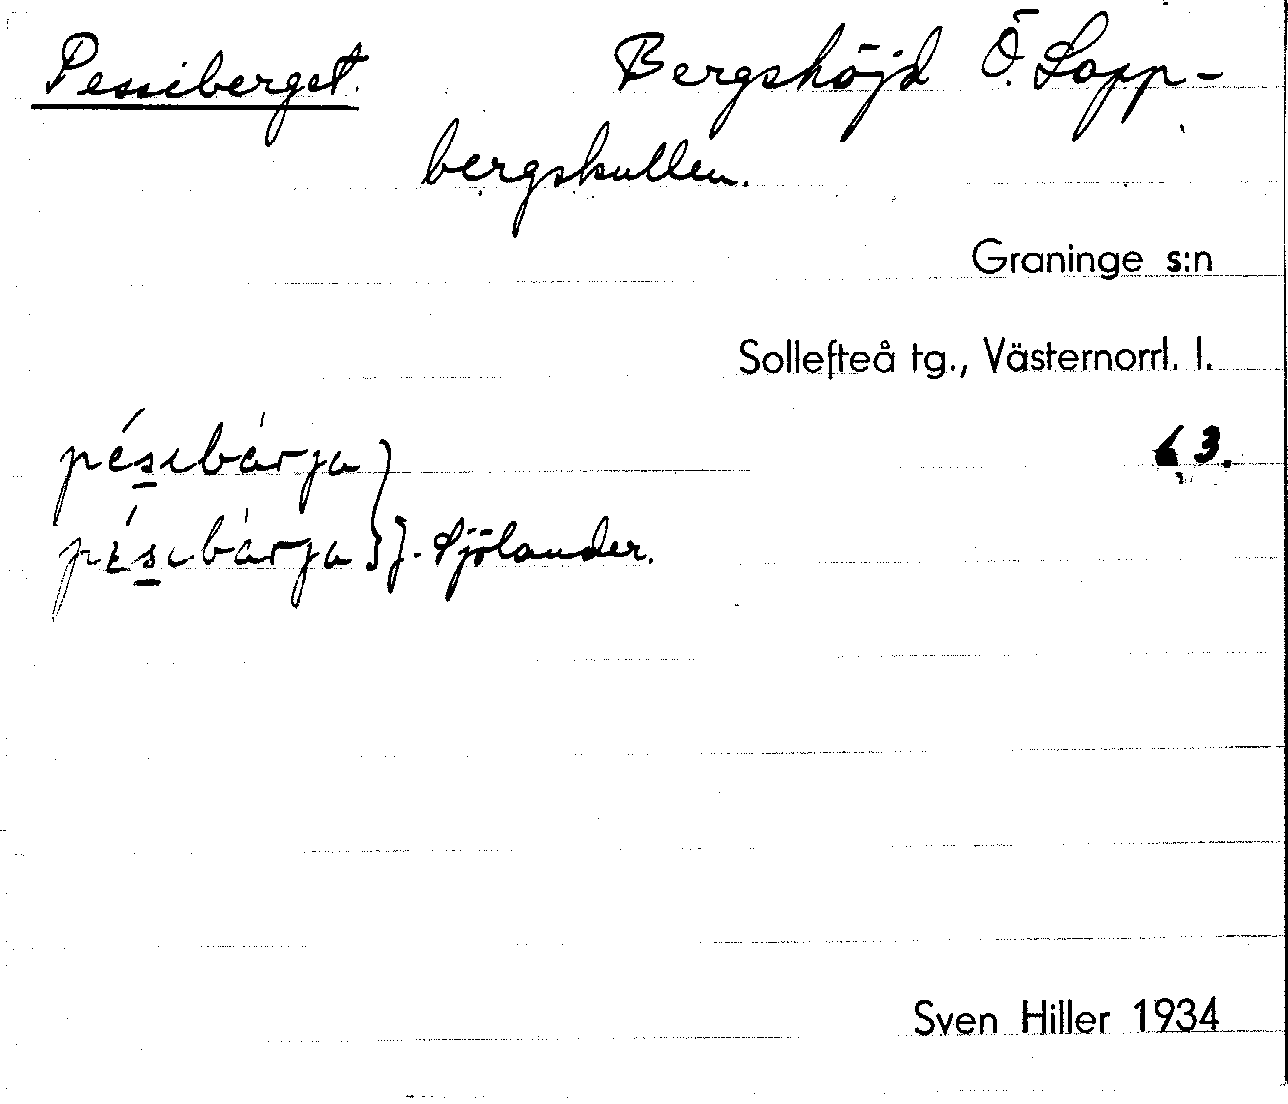 Pessiberget. Bergshöjd Ö. Lapp-
bergskullen.
Graninge s:n
Sollefteå tg., Västernorrl. l.
pésıbàrja
63.
pésıbàrja } J. Sjölander.
Sven Hiller 1934